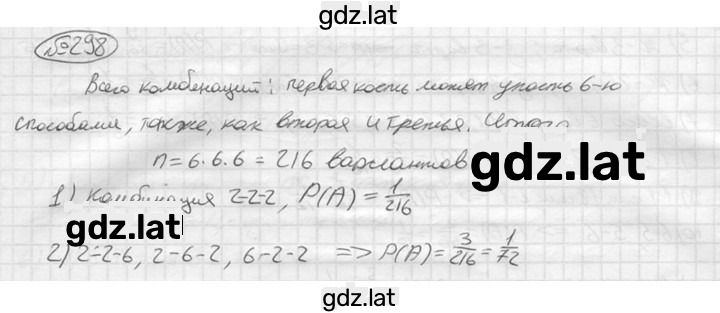 gdz.lat
№298
Всего комбенаций: первая кость может упасть 6-ю
способами, также, как вторая и третья. Итого
n = 6·6·6 = 216 вариантов
gdz.lat
1) Комбинация 2-2-2, P(A) = 1/216
gdz.lat
2) 2-2-6, 2-6-2, 6-2-2 => P(A) = 3/216 = 1/72
gdz.lat